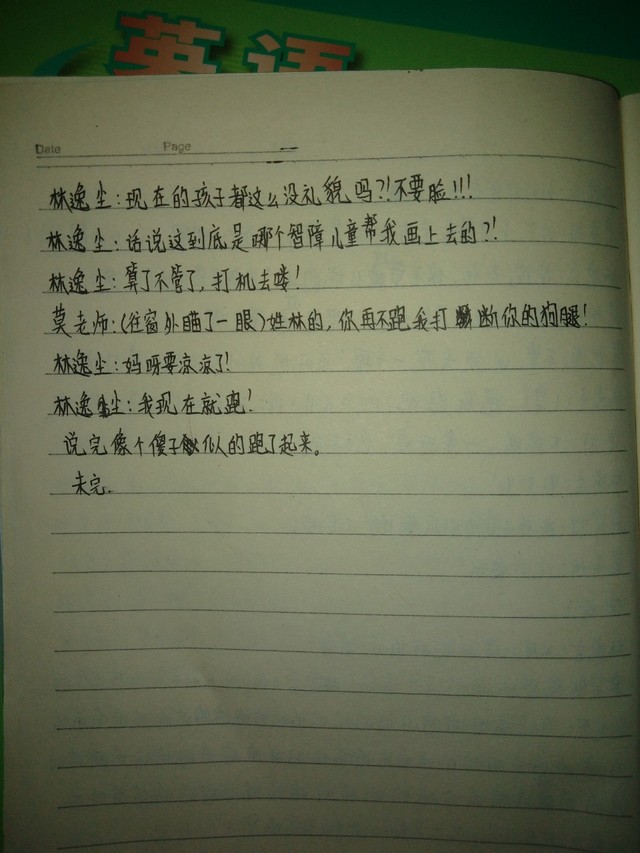 英语
Date Page
林逸尘:现在的孩子都这么没礼貌吗?!不要脸!!!
林逸尘:话说这到底是哪个智障儿童帮我画上去的?!
林逸尘:算了不管了,打机去喽!
莫老师:(往窗外瞄了一眼)姓林的,你再不跑我打断你的狗腿!
林逸尘:妈呀要凉凉了!
林逸尘:我现在就跑!
说完像个傻子似人的跑了起来。
未完.